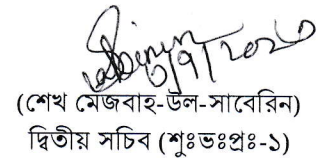 ৬/৭/২০২৩
(শেখ মেজবাহ-উল-সাবেরিন)
দ্বিতীয় সচিব (শুঃভঃপ্রঃ-১)